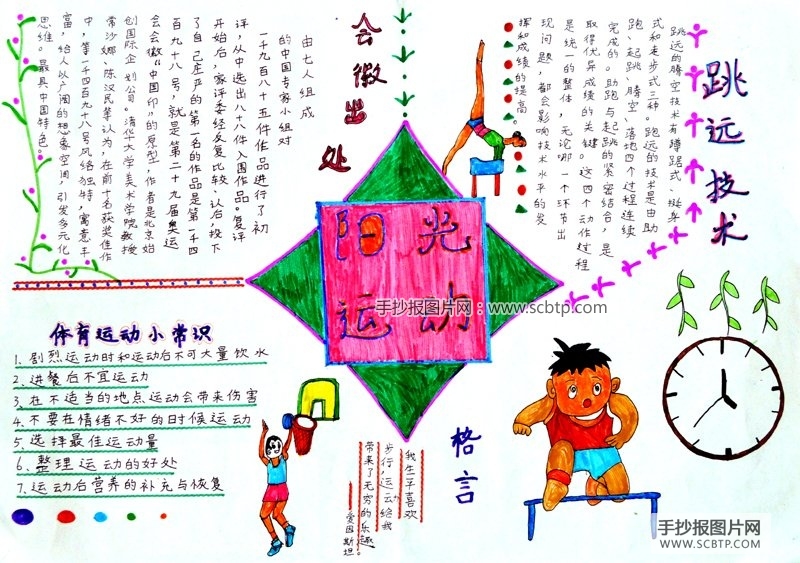 跳远技术
跳远的腾空技术有蹲踞式、挺身
式和走步式三种。跑远的技术是由助
跑、起跳、腾空、落地四个过程连续
完成的。助跑与起跳的紧密结合，是
取得优异成绩的关键。这四个动作过程
是统一的整体，无论哪一个环节出
现问题，都会影响技术水平的发
挥和成绩的提高。
会徽出处
由七人组成
的中国专家小组对
一千九百八十五件作品进行了初
评，从中选出八十八件入围作品。复评
开始后，家评委经反复比较、认后投下
了自己庄严的第一名的作品是第一千四
百九八号，就是第二十九届奥运
会会徽“中国印”的原型，作者是北京始
创国际企划公司。清华大学美术学院教授
常沙娜、陈汉民等认为，在前十名获奖佳作
中，第一千四百九十八号风格独特，寓意丰
富，给人以广阔的想象空间，引发多元化
思维。最具中国特色。
阳光
运动
手抄报图片网：www.scbtp.com
体育运动小常识
1、剧烈运动时和运动后不可大量饮水
2、进餐后不宜运动
3、在不适当的地点运动会带来伤害
4、不要在情绪不好的时候运动
5、选择最佳运动量
6、整理运动的好处
7、运动后营养的补充与恢复
格言
我生平喜欢
步行，运动给我
带来了无穷的乐趣。
爱因斯坦。
手抄报图片网
WWW.SCBTP.COM